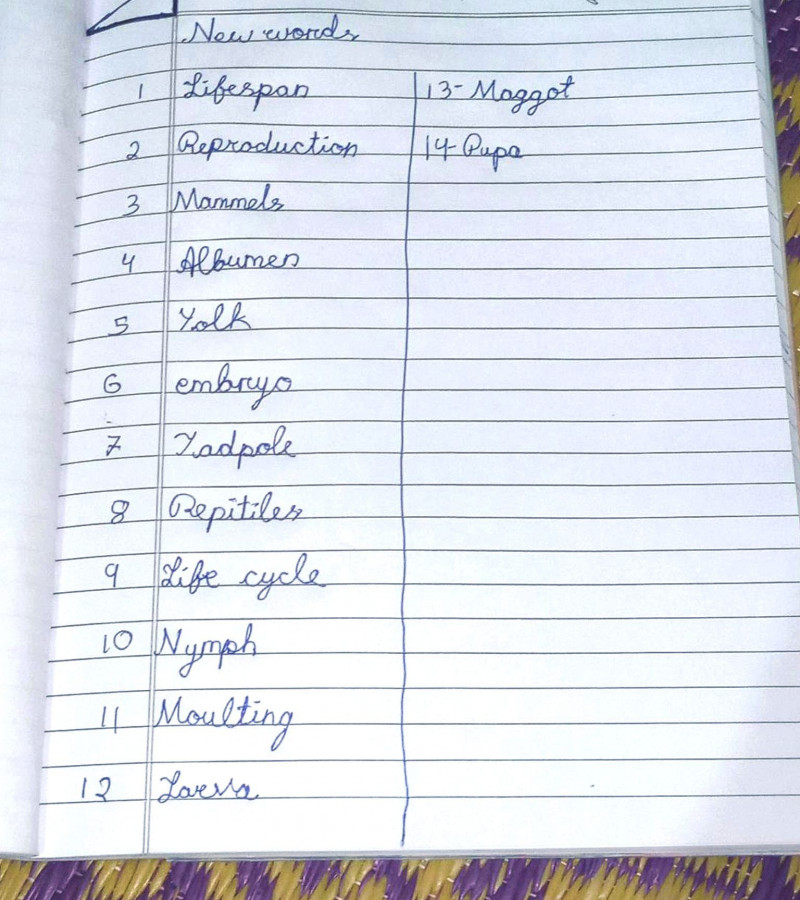 New words
1 Lifespan
2 Reproduction
3 Mammels
4 Albumen
5 Yolk
6 embryo
7 Tadpole
8 Repitiles
9 Life cycle
10 Nymph
11 Moulting
12 Larva
13- Maggot
14- Pupa